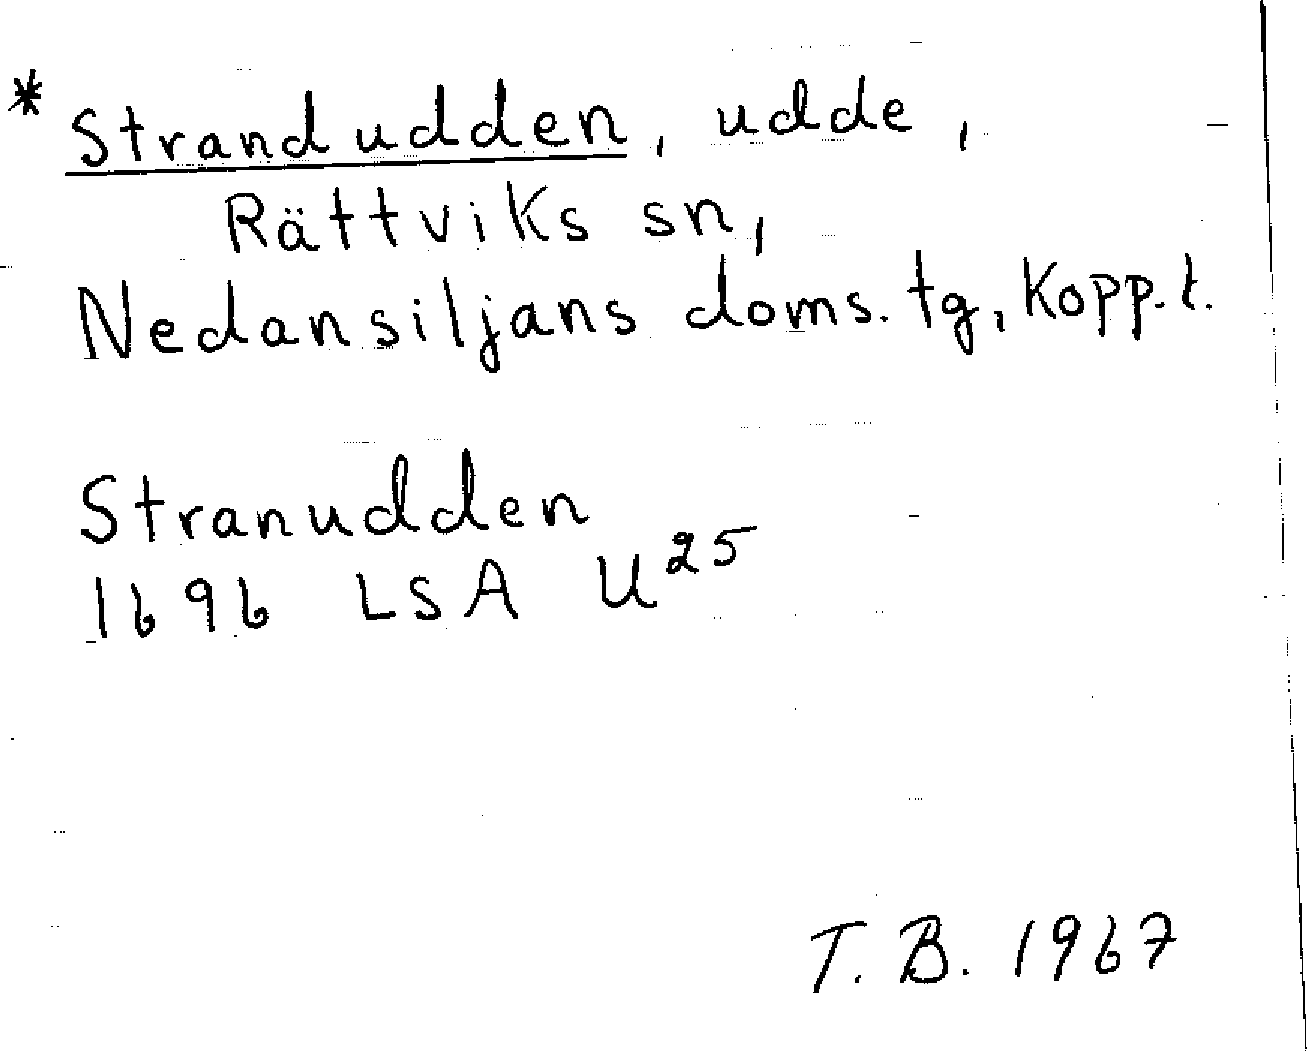 * Strandudden, udde,
Rättviks sn,
Nedansiljans doms. tg, Kopp. l.
Stranudden
1696 LSA U²⁵
T. B. 1967